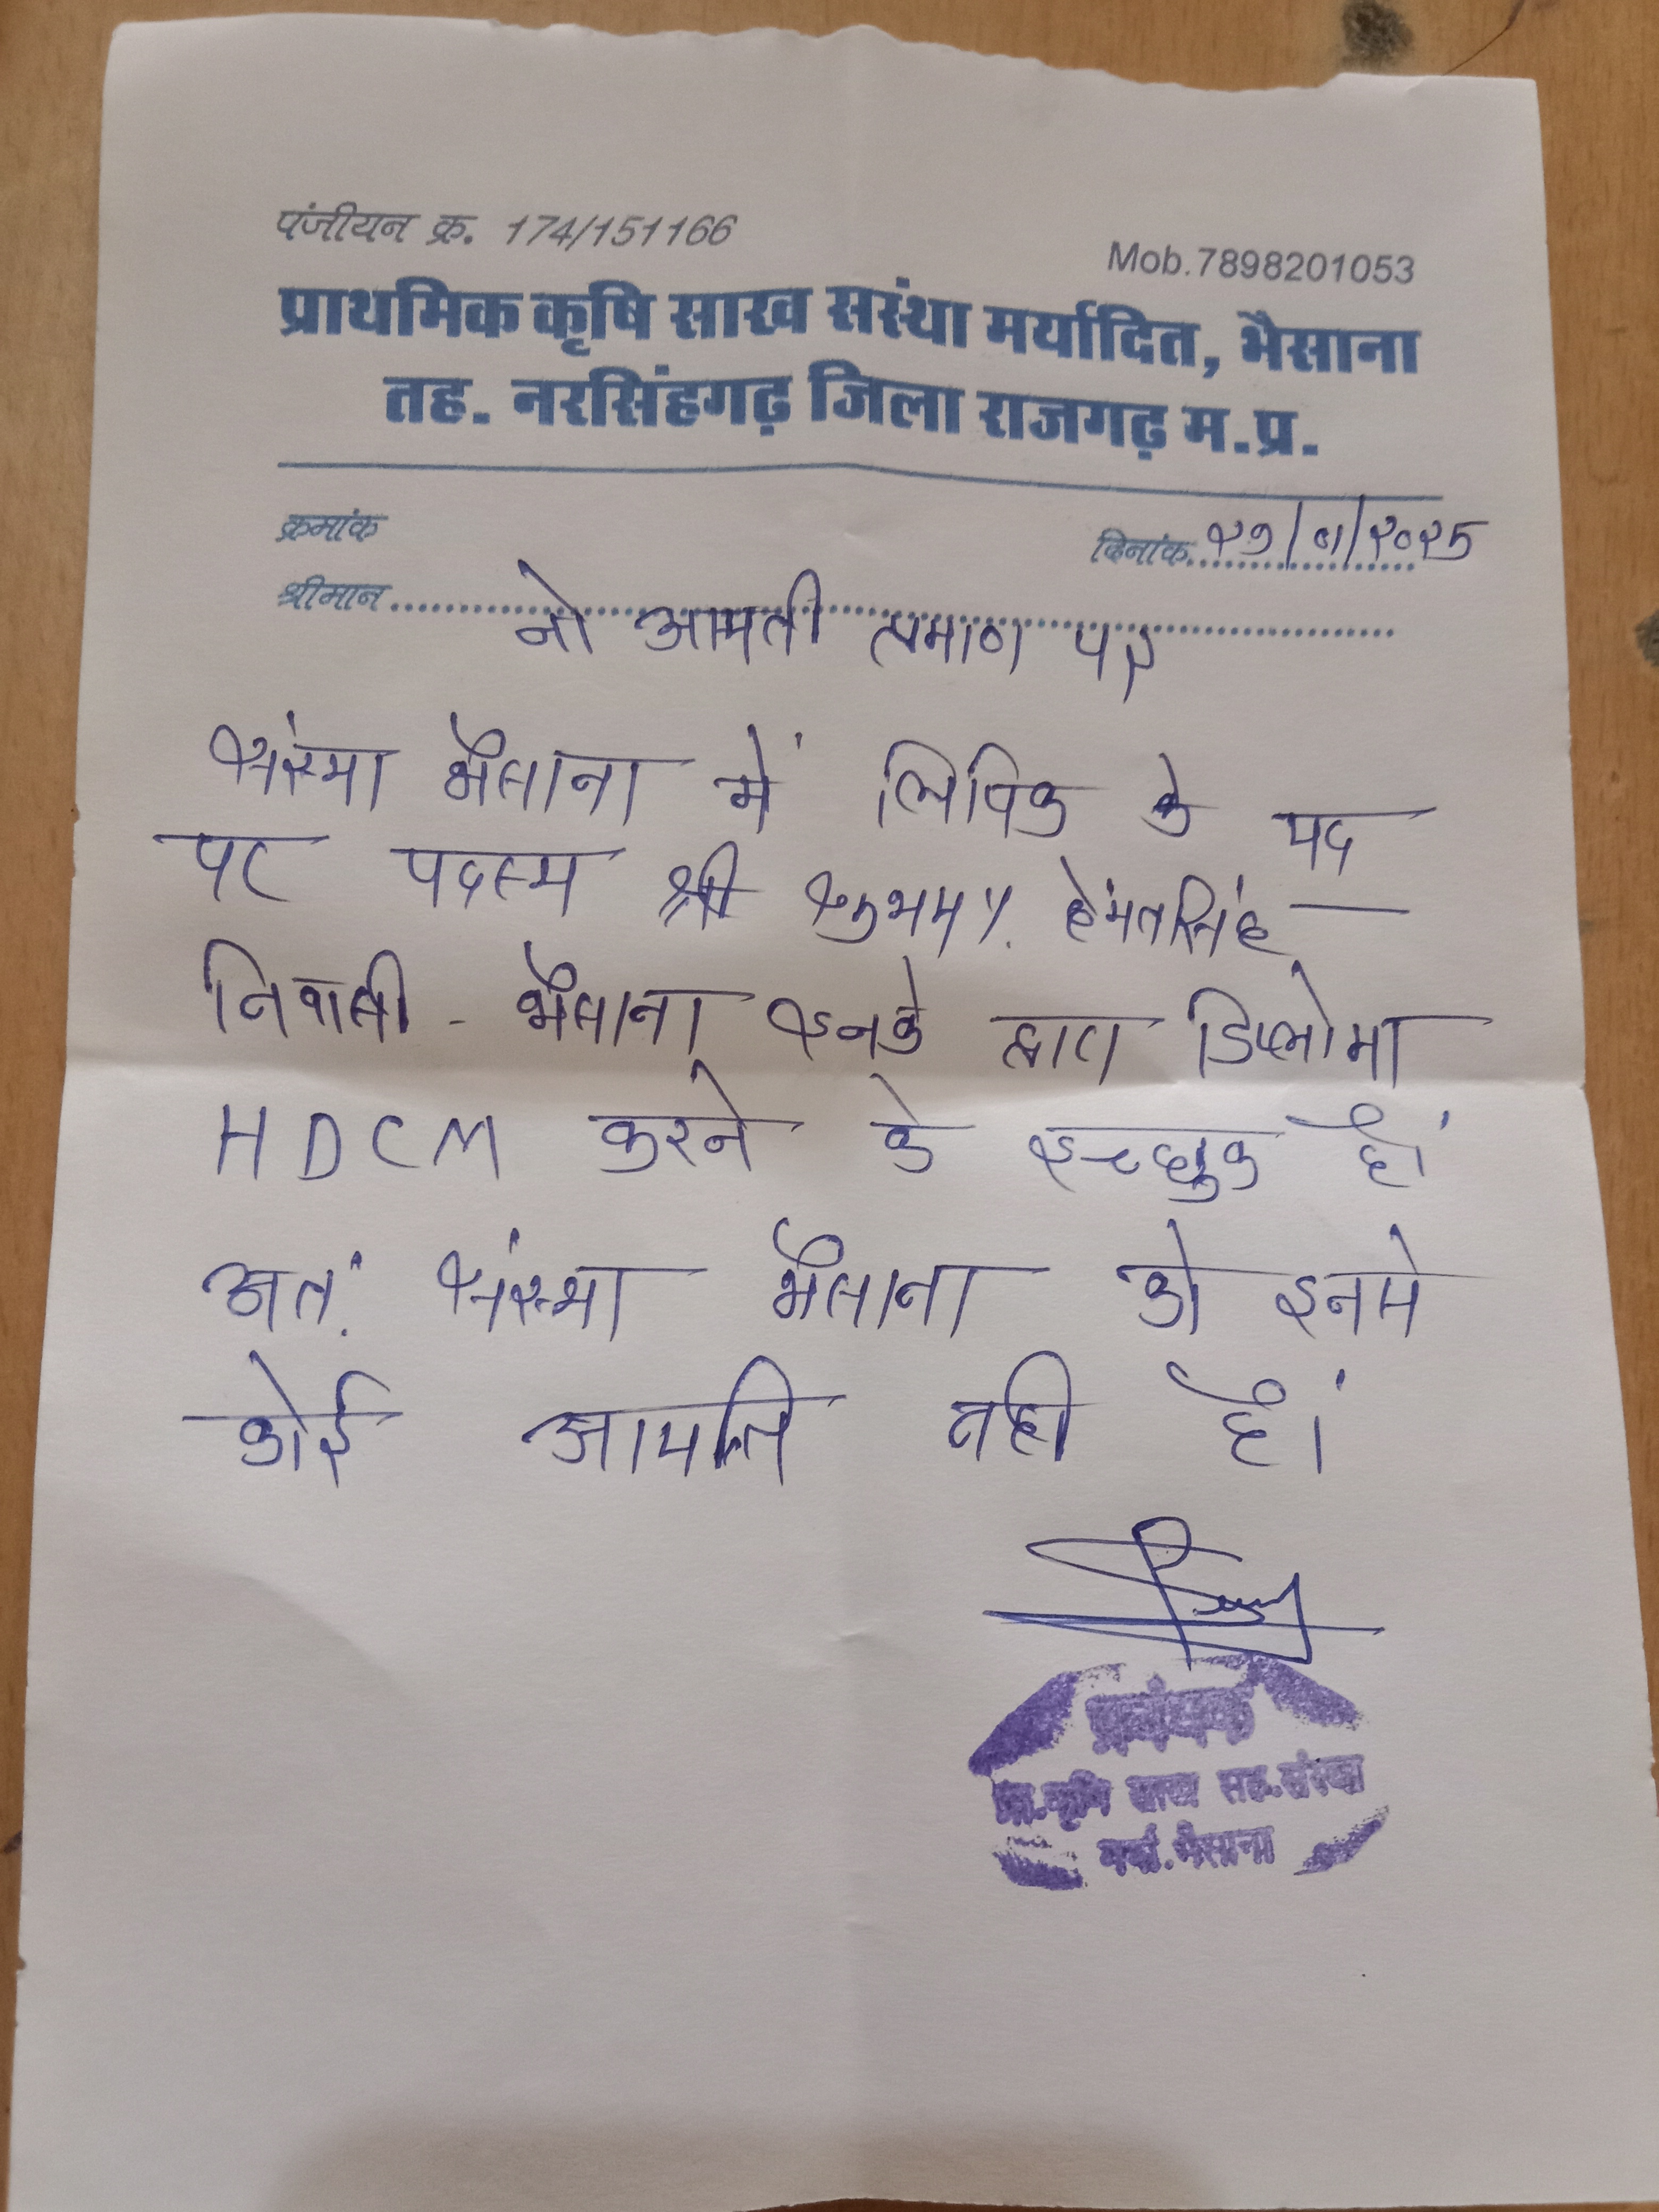 पंजीयन क्र. 174/151166
Mob.7898201053
प्राथमिक कृषि साख सस्ंथा मर्यादित, भैसाना
तह. नरसिंहगढ़ जिला राजगढ़ म.प्र.
क्रमांक
दिनांक. २७/०१/२०२५
श्रीमान
नो आपती प्रमाण पत्र
संस्था भैसाना में लिपिक के पद
पर पदस्थ श्री शुभम/. हेंमतसिंह
निवासी - भैसाना इनके द्वारा डिप्लोमा
HDCM करने के इच्छुक है।
अत: संस्था भैसाना को इनसे
कोई आपत्ति नही है।
प्रबंधक
प्रा.कृषि साख सह.संस्था
मर्या.भैसाना